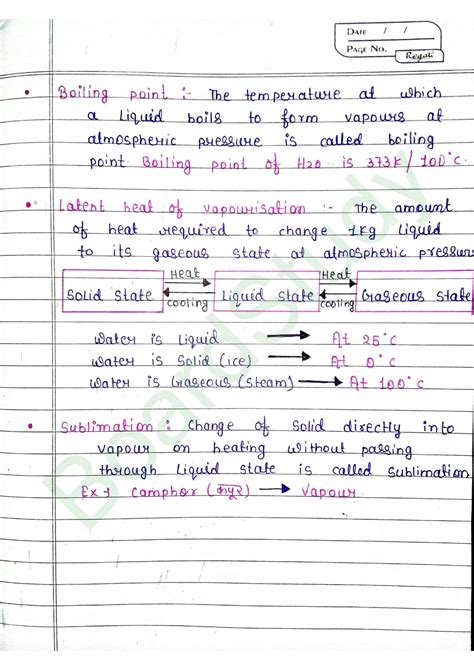 DATE / /
PAGE No.
Royal
• Boiling point :- The temperature at which
a Liquid boils to form vapours at
atmospheric pressure is called boiling
point Boiling point of H2O is 373K/100°c.
• Latent heat of vapourisation :- The amount
of heat required to change 1Kg liquid
to its gaseous state at atmospheric pressure
Heat Heat
Solid State Liquid state Gaseous state
cooling cooling
Water is Liquid → At 25°c
water is Solid (ice) → At 0°c
Water is Gaseous (Steam) → At 100°c
• Sublimation : Change of Solid directly into
vapour on heating without passing
through Liquid state is called Sublimation
Ex → Camphor (कपूर) → Vapour
BoardStudy